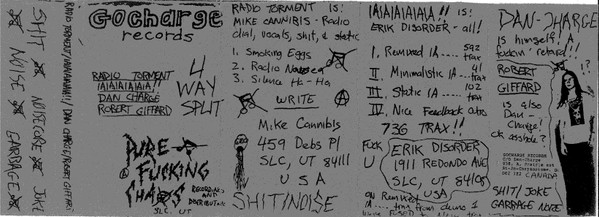 SHIT ☒ NOISECORE ☒ JOKE
☒ NOISE ☒ GARBAGE ☒
RADIO TORMENT/IAIAIAIAIAIA!!/DAN CHARGE/ROBERT GIFFARD
GOCHARGE
records
RADIO TORMENT
IAIAIAIAIAIA!!
DAN CHARGE
ROBERT GIFFARD
4
WAY
SPLIT
PURE
FUCKING
CHAOS
RECORDING
AND
DISTRIBUTION
SLC, UT
RADIO TORMENT IS:
MIKE CANNIBIS - Radio
dial, vocals, shit, & static
1. Smoking Eggs
2. Radio
3. Silence Ha-Ha
WRITE
Mike Cannibis
459 Debs Pl
SLC, UT 84111
USA
SHIT/NOISE
IAIAIAIAIAIA!! is:
ERIK DISORDER - all!
I. Remixed IA .... 592 trax
II. Minimalistic IA ... 41 trax
III. Static IA ..... 102 trax
IV. Nice Feedback
736 TRAX!!
FUCK U
ERIK DISORDER
1911 REDONDO AVE
SLC, UT 84108
USA
on Remixed
IA
DAN-CHARGE
is himself! A
fuckin' retard!!
ROBERT
GIFFARD
is also
Dan-
Charge!
asshole?
GOCHARGE RECORDS
CANADA
SHIT/JOKE
GARBAGE NOIZE